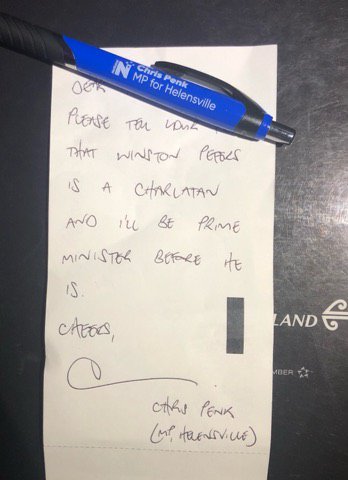 N
National
Chris Penk
MP for Helensville
DEAR
PLEASE TELL YOUR
THAT WINSTON PETERS
IS A CHARLATAN
AND I'LL BE PRIME
MINISTER BEFORE HE
IS.
CHEERS,
CHRIS PENK
(MP, HELENSVILLE)
LAND
MBER